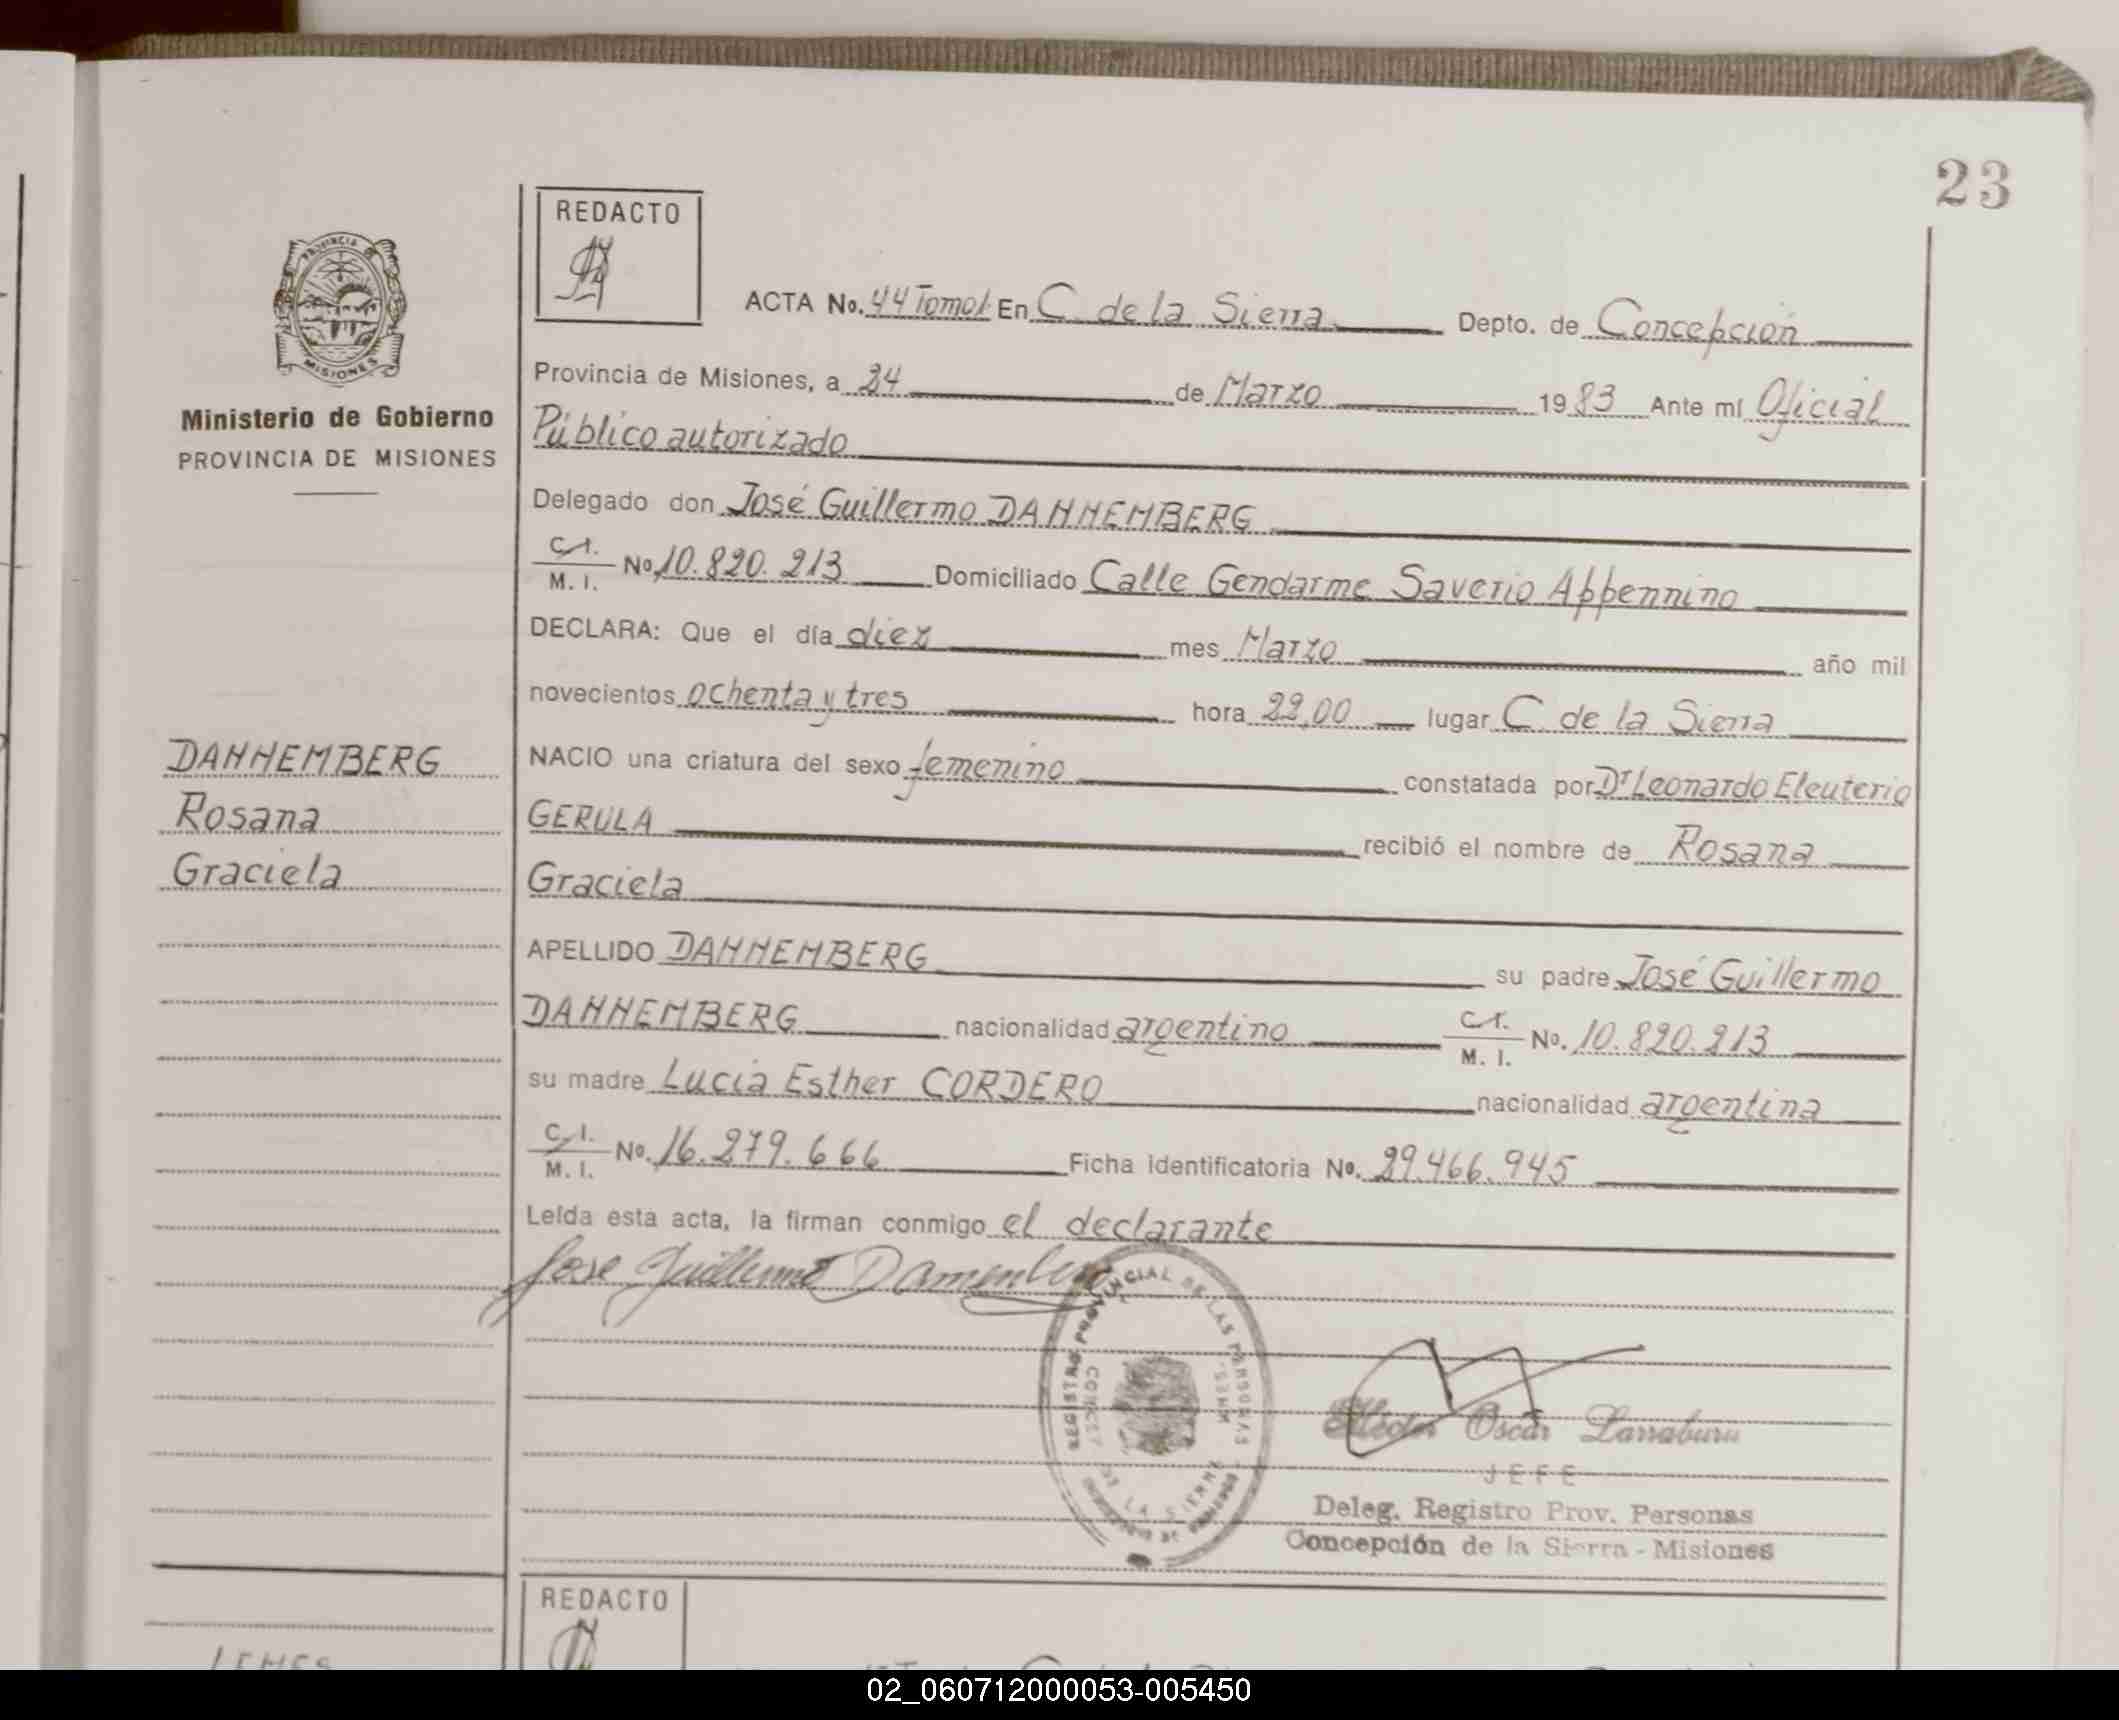 23
REDACTO
PROVINCIA DE
MISIONES
Ministerio de Gobierno
PROVINCIA DE MISIONES
ACTA No. 44 Tomo I En C. de la Sierra Depto. de Concepción
Provincia de Misiones, a 24 de Marzo 1983 Ante mí Oficial
Público autorizado
Delegado don José Guillermo DANNEMBERG
C.I. M. I. No 10.820.213 Domiciliado Calle Gendarme Saverio Appennino
DECLARA: Que el día diez mes Marzo año mil
novecientos ochenta y tres hora 22,00 lugar C. de la Sierra
NACIO una criatura del sexo femenino constatada por Dr Leonardo Eleuterio
GERULA recibió el nombre de Rosana
Graciela
APELLIDO DANNEMBERG su padre José Guillermo
DANNEMBERG nacionalidad argentino C.I. M. I. No. 10.820.213
su madre Lucia Esther CORDERO nacionalidad argentina
C. I. M. I. No. 16.279.666 Ficha identificatoria No. 29.466.945
Leída esta acta, la firman conmigo el declarante
DANNEMBERG
Rosana
Graciela
Jose Guillermo
REGISTRO PROVINCIAL DE LAS PERSONAS
DE LA SIERRA
Héctor Oscar Larraburu
JEFE
Deleg. Registro Prov. Personas
Concepción de la Sierra - Misiones
REDACTO
02_060712000053-005450